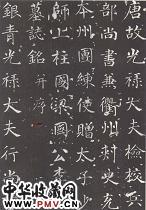 唐故光祿大夫
部尚書兼衢州刺史充
本州團練使贈太子少
師上柱國梁國公李
墓誌銘并序
銀青光祿大夫行光
中华收藏网